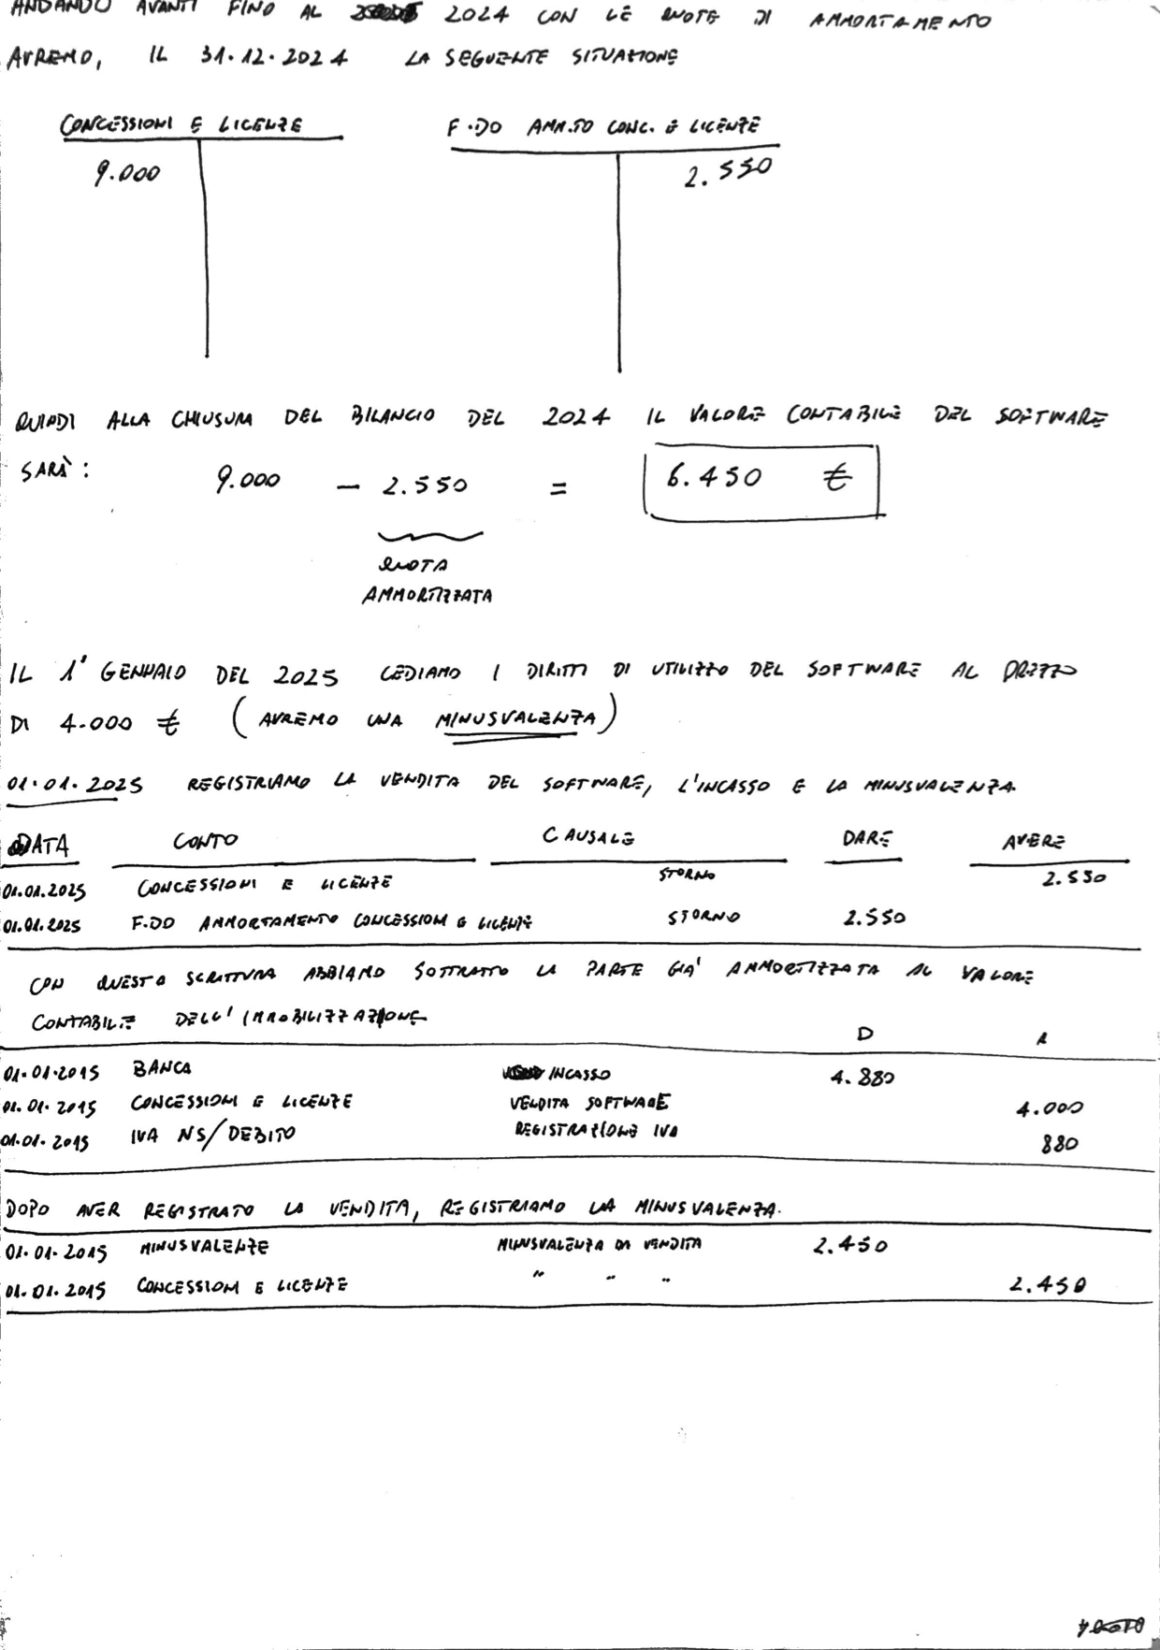 ANDANDO AVANTI FINO AL 2024 CON LE QUOTE DI AMMORTAMENTO
AVREMO, IL 31.12.2024 LA SEGUENTE SITUAZIONE
CONCESSIONI E LICENZE F.DO AMM.TO CONC. E LICENZE
9.000 2.550
QUINDI ALLA CHIUSURA DEL BILANCIO DEL 2024 IL VALORE CONTABILE DEL SOFTWARE
SARÀ: 9.000 - 2.550 = 6.450 €
QUOTA
AMMORTIZZATA
IL 1° GENNAIO DEL 2025 CEDIAMO I DIRITTI DI UTILIZZO DEL SOFTWARE AL PREZZO
DI 4.000 € (AVREMO UNA MINUSVALENZA)
01.01.2025 REGISTRIAMO LA VENDITA DEL SOFTWARE, L'INCASSO E LA MINUSVALENZA
DATA CONTO CAUSALE DARE AVERE
01.01.2025 CONCESSIONI E LICENZE STORNO 2.550
01.01.2025 F.DO AMMORTAMENTO CONCESSIONI E LICENZE STORNO 2.550
CON QUESTA SCRITTURA ABBIAMO SOTTRATTO LA PARTE GIA' AMMORTIZZATA AL VALORE
CONTABILE DELL'IMMOBILIZZAZIONE
D A
01.01.2015 BANCA INCASSO 4.880
01.01.2015 CONCESSIONI E LICENZE VENDITA SOFTWARE 4.000
01.01.2015 IVA NS/DEBITO REGISTRAZIONE IVA 880
DOPO AVER REGISTRATO LA VENDITA, REGISTRIAMO LA MINUSVALENZA.
01.01.2015 MINUSVALENZE MINUSVALENZA DA VENDITA 2.450
01.01.2015 CONCESSIONI E LICENZE " " " 2.450